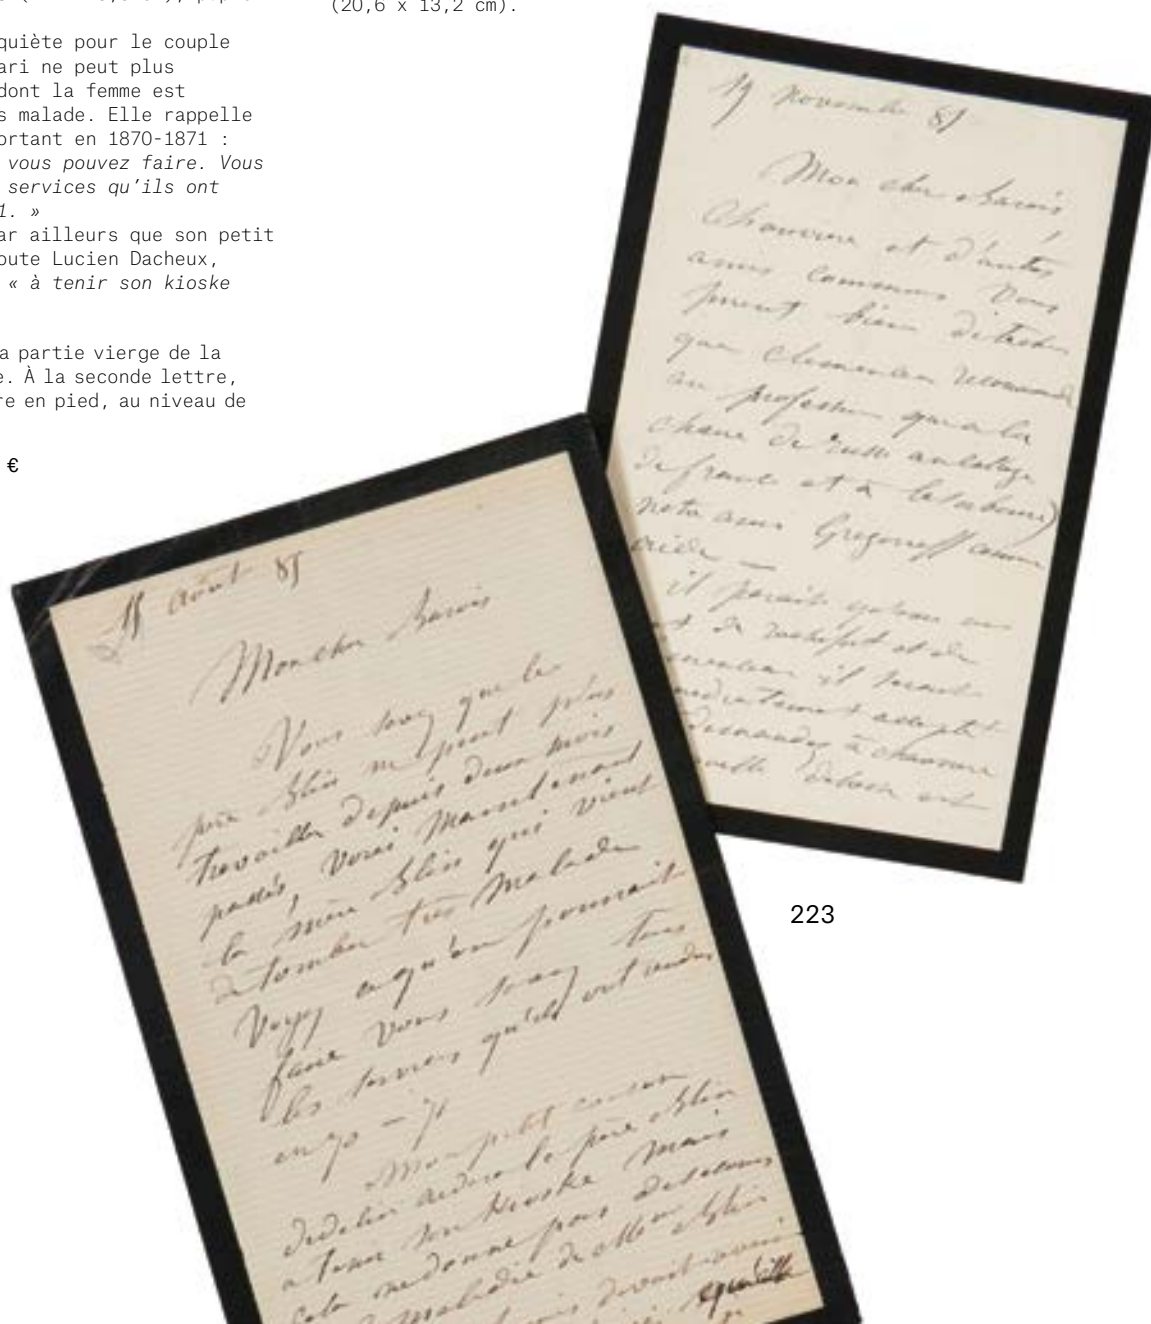 (20,6 x 13,2 cm).
quiète pour le couple
ari ne peut plus
dont la femme est
s malade. Elle rappelle
ortant en 1870-1871 :
vous pouvez faire. Vous
services qu’ils ont
1. »
ar ailleurs que son petit
oute Lucien Dacheux,
« à tenir son kioske
a partie vierge de la
e. À la seconde lettre,
re en pied, au niveau de
€
19 novembre 85
Mon cher Barois
Chauviere et d'autres
amis communs vous
prient bien
que Clemenceau recommande
au professeur qui a la
chaire de russe au college
de france et à la sorbonne)
notre ami Gregorieff comme
aide —
il parait
et de rochefort et de
il serait
accepté
demandez à chauviere
est
223
15 Août 85
Mon cher Barois
Vous savez que le
père Blin ne peut plus
travailler depuis deux mois
passés, voici maintenant
la mère Blin qui vient
de tomber très malade
Voyez ce qu'on pourrait
faire vous savez tous
les services qu'ils ont rendus
en 70 — 71
Mon petit cousin
aidera le père Blin
a tenir son Kioske mais
cela ne donne pas
maladie de Mme Blin
devait avoir